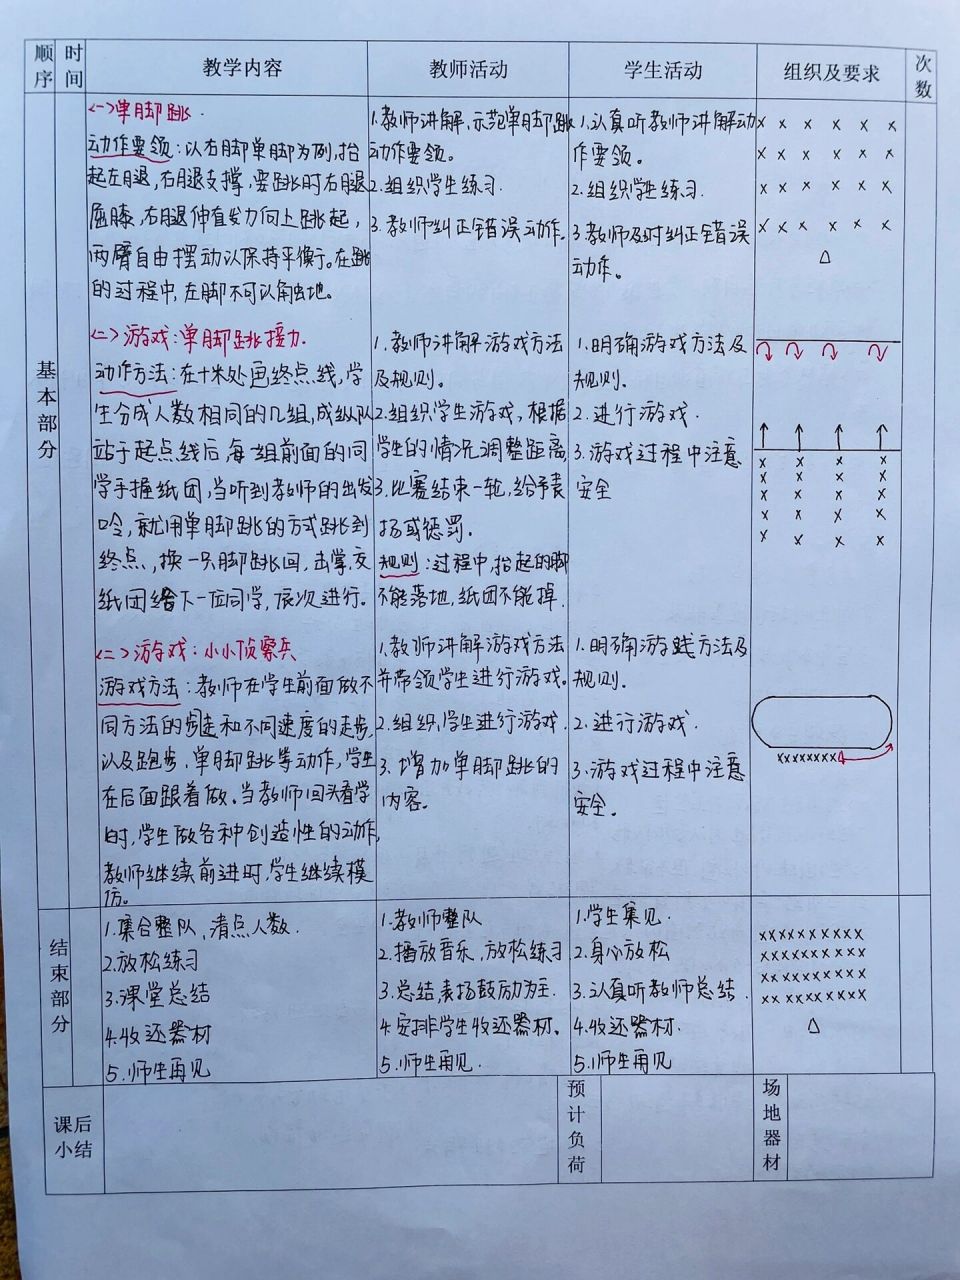 顺序 时间 教学内容 教师活动 学生活动 组织及要求 次数
基本部分
(一)单脚跳.
动作要领:以右脚单脚为例,抬
起左腿,右腿支撑,要跳时右腿
屈膝,右腿伸直发力向上跳起,
两臂自由摆动以保持平衡。在跳
的过程中,左脚不可以触地。
1.教师讲解、示范单脚跳
动作要领。
2.组织学生练习.
3.教师纠正错误动作.
1.认真听教师讲解动
作要领。
2.组织学生练习.
3.教师及时纠正错误
动作。
(二)游戏:单脚跳接力
动作方法:在十米处画终点线,学
生分成人数相同的几组,成纵队
站于起点线后,每组前面的同
学手握纸团,当听到教师的出发
呤,就用单脚跳的方式跳到
终点,换一只脚跳回,击掌,交
纸团给下一位同学,依次进行.
1.教师讲解游戏方法
及规则.
2.组织学生游戏,根据
学生的情况调整距离
3.比赛结束一轮,给予表
扬或惩罚.
规则:过程中,抬起的脚
不能落地,纸团不能掉.
1.明确游戏方法及
规则.
2.进行游戏.
3.游戏过程中注意
安全
(二)游戏:小小侦察兵
游戏方法:教师在学生前面做不
同方法的步走和不同速度的走步,
以及跑步,单脚跳等动作,学生
在后面跟着做.当教师回头看学
时,学生做各种创造性的动作,
教师继续前进时,学生继续模
仿。
1.教师讲解游戏方法
并带领学生进行游戏.
2.组织学生进行游戏.
3.增加单脚跳的
内容。
1.明确游戏方法及
规则.
2.进行游戏.
3.游戏过程中注意
安全。
结束部分
1.集合整队、清点人数.
2.放松练习
3.课堂总结
4.收还器材
5.师生再见
1.教师整队
2.播放音乐,放松练习
3.总结,表扬鼓励为主.
4.安排学生收还器材.
5.师生再见.
1.学生集见.
2.身心放松
3.认真听教师总结.
4.收还器材.
5.师生再见
课后小结 预计负荷 场地器材